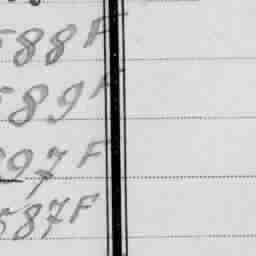 588F
589F
97F
587F